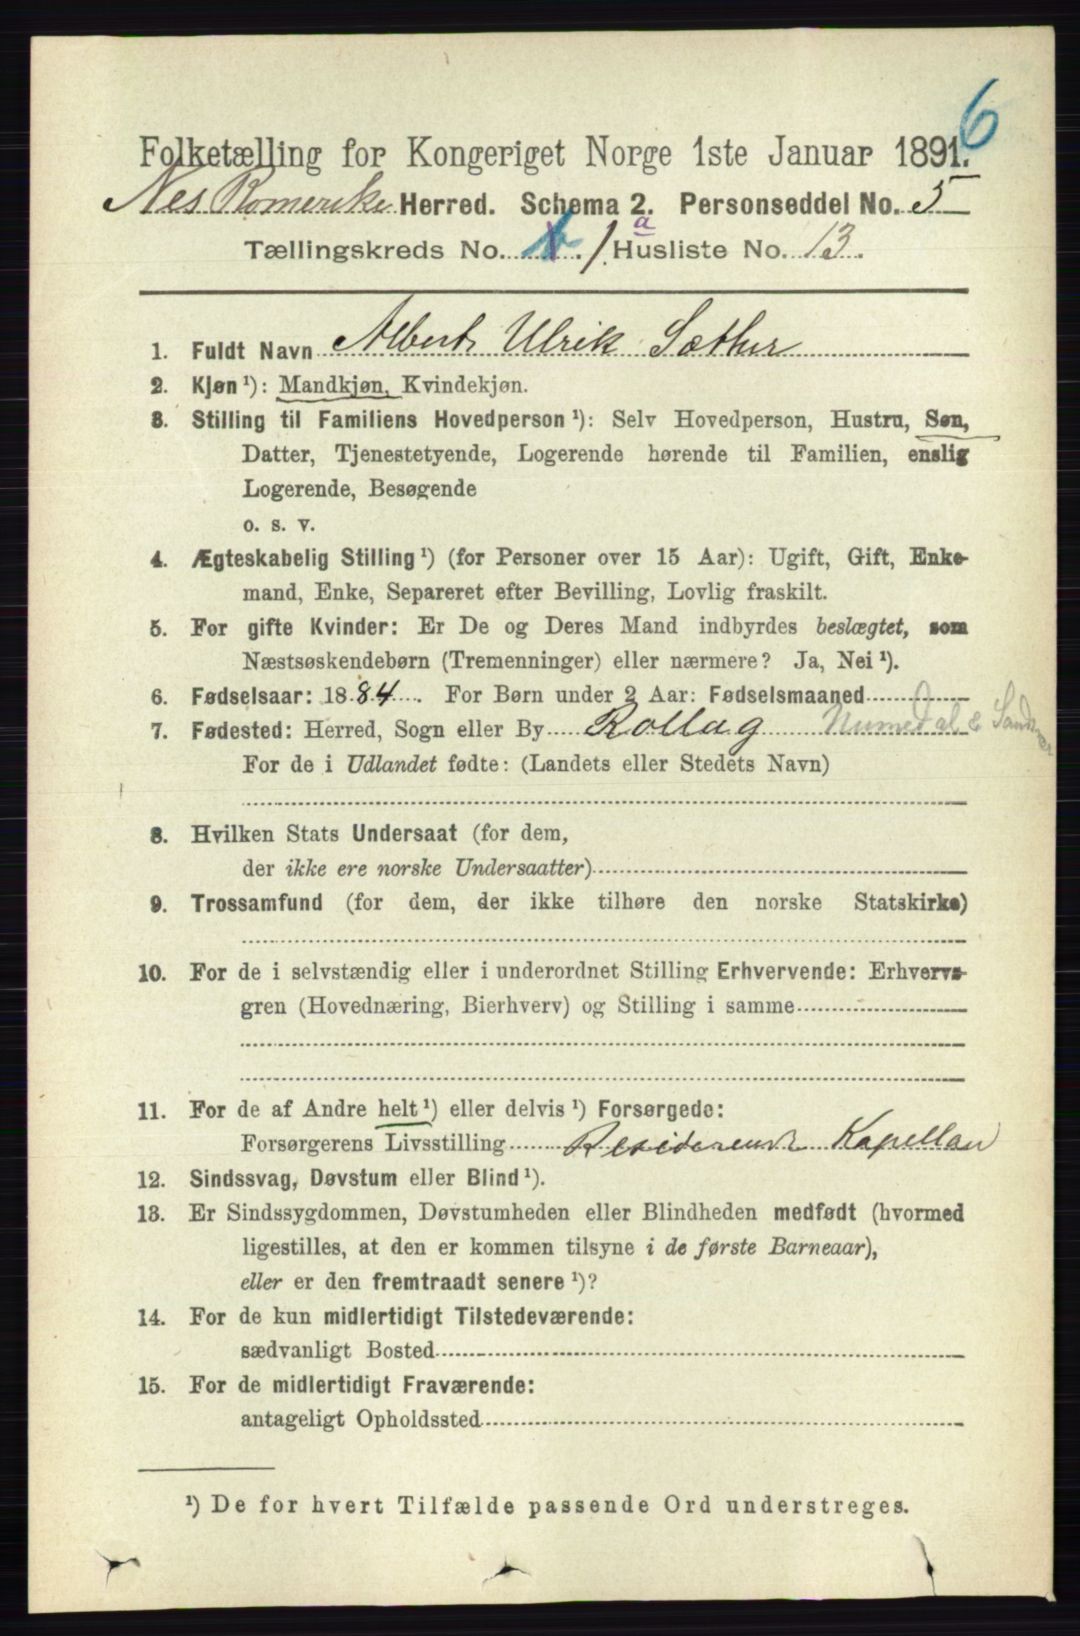 6
Folketælling for Kongeriget Norge 1ste Januar 1891.
Nes Romerike Herred. Schema 2. Personseddel No. 5
Tællingskreds No. 1 a Husliste No. 13.
1. Fuldt Navn Albert Ulrik Sæther
2. Kjøn ¹): Mandkjøn, Kvindekjøn.
3. Stilling til Familiens Hovedperson ¹): Selv Hovedperson, Hustru, Søn,
Datter, Tjenestetyende, Logerende hørende til Familien, enslig
Logerende, Besøgende
o. s. v.
4. Ægteskabelig Stilling ¹) (for Personer over 15 Aar): Ugift, Gift, Enke-
mand, Enke, Separeret efter Bevilling, Lovlig fraskilt.
5. For gifte Kvinder: Er De og Deres Mand indbyrdes beslægtet, som
Næstsøskendebørn (Tremenninger) eller nærmere? Ja, Nei ¹).
6. Fødselsaar: 1884. For Børn under 2 Aar: Fødselsmaaned
7. Fødested: Herred, Sogn eller By Rollag Numedal &
For de i Udlandet fødte: (Landets eller Stedets Navn)
8. Hvilken Stats Undersaat (for dem,
der ikke ere norske Undersaatter)
9. Trossamfund (for dem, der ikke tilhøre den norske Statskirke)
10. For de i selvstændig eller i underordnet Stilling Erhvervende: Erhvervs-
gren (Hovednæring, Bierhverv) og Stilling i samme
11. For de af Andre helt ¹) eller delvis ¹) Forsørgede:
Forsørgerens Livsstilling Residerende Kapellan
12. Sindssvag, Døvstum eller Blind ¹).
13. Er Sindssygdommen, Døvstumheden eller Blindheden medfødt (hvormed
ligestilles, at den er kommen tilsyne i de første Barneaar),
eller er den fremtraadt senere ¹)?
14. For de kun midlertidigt Tilstedeværende:
sædvanligt Bosted
15. For de midlertidigt Fraværende:
antageligt Opholdssted
¹) De for hvert Tilfælde passende Ord understreges.